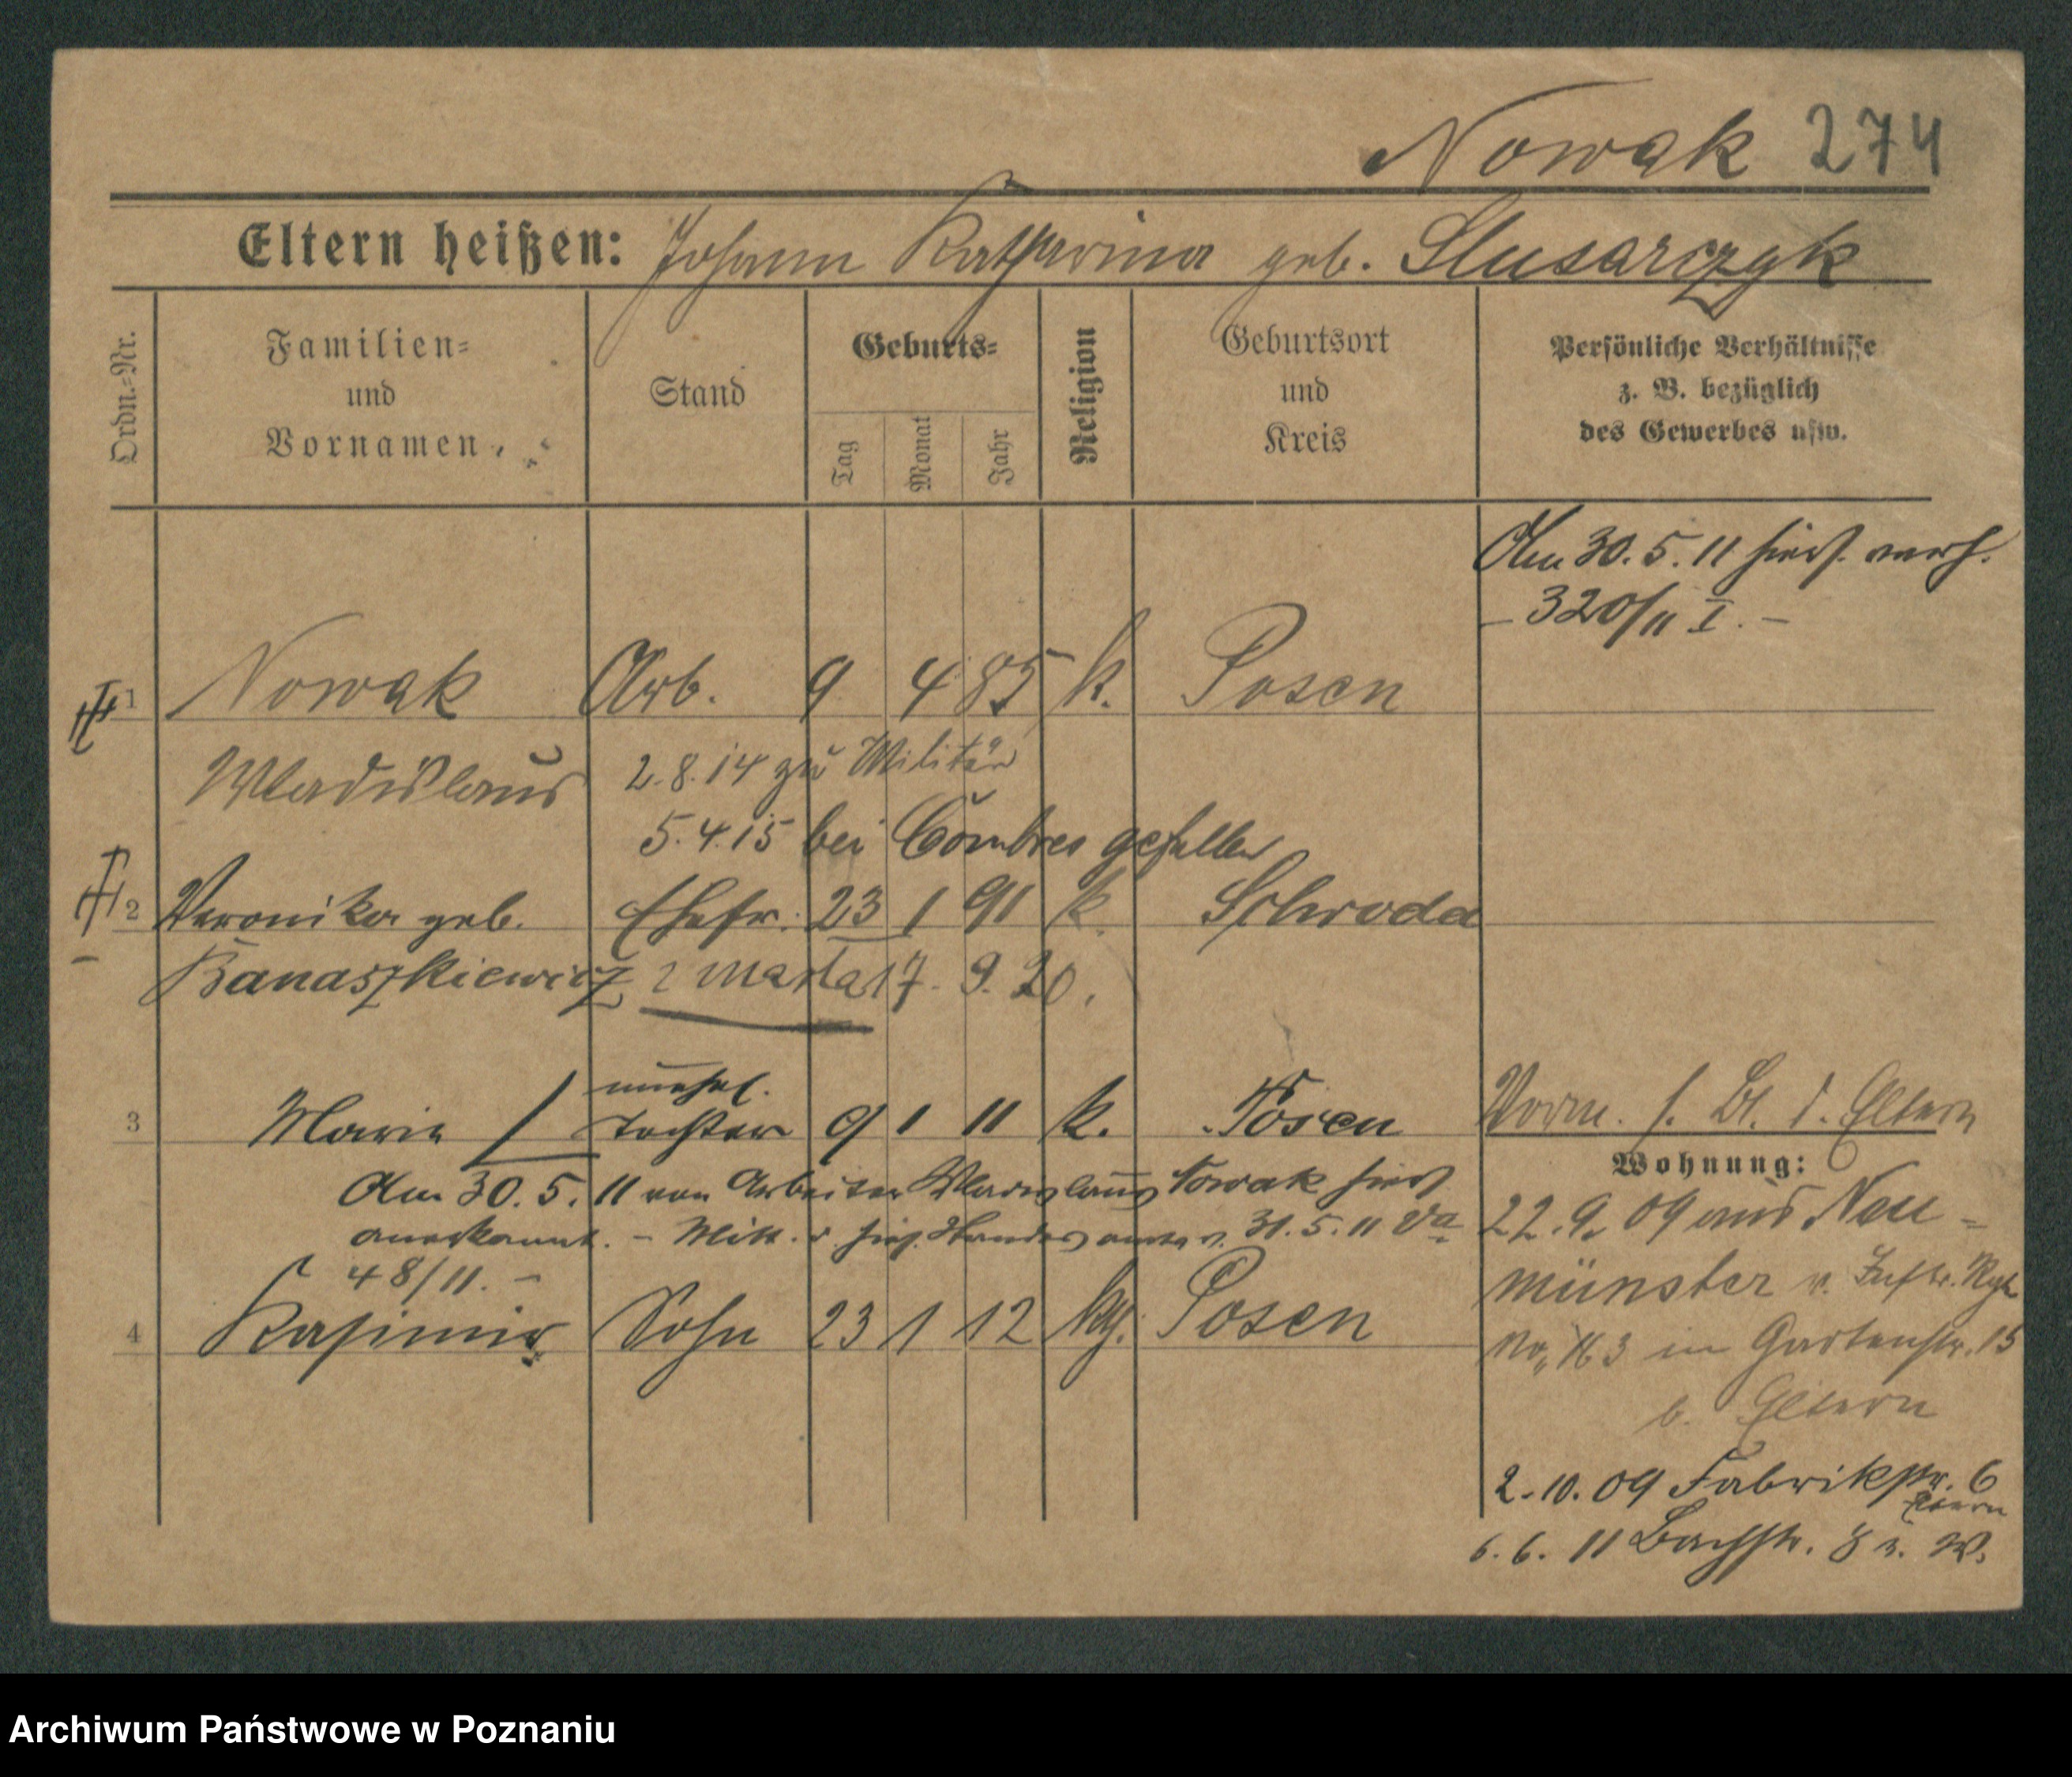 Nowak 274
Eltern heißen: Johann Katharina geb. Slusarczyk
Ordn.=Nr.
Familien=
und
Vornamen
Stand
Geburts=
Tag
Monat
Jahr
Religion
Geburtsort
und
Kreis
Persönliche Verhältnisse
z. B. bezüglich
des Gewerbes usw.
Am 30. 5. 11 hiers. verh.
– 320/11 I. –
1 Nowak Arb. 9 4 85 k. Posen
Wladislaus 2. 8. 14 zu Militär
5. 4. 15 bei Combres gefallen
2 Veronika geb. Ehefr. 23 1 91 k. Schroda
Banaszkiewicz zmarła 17. 9. 20.
unehel.
3 Marie Tochter 9 1 11 k. Posen
Vorm. s. Bl. d. Eltern
Am 30. 5. 11 von Arbeiter Wladislaus Nowak hier
anerkannt. – Mitt. d. hies. Standesamtes v. 31. 5. 11 Va
48/11. –
4 Kasimir Sohn 23 1 12 kth. Posen
Wohnung:
22. 9. 09 aus Neu=
münster v. Inftr. Rgt
No. 163 in Gartenstr. 15
b. Eltern
2. 10. 09 Fabrikstr. 6
Eltern
6. 6. 11 Bachstr. 8 z. W.
Archiwum Państwowe w Poznaniu